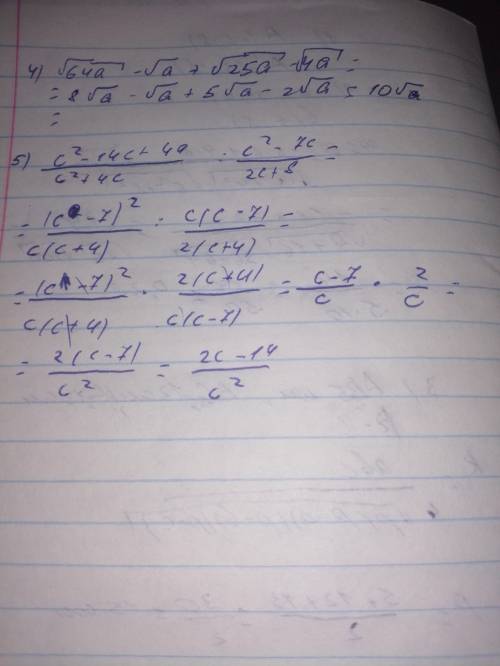 4) √64a - √a + √25a - √4a =
= 8√a - √a + 5√a - 2√a = 10√a
=
5) (c² - 14c + 49)/(c² + 4c) : (c² - 7c)/(2c + 8) =
= (c - 7)²/(c(c + 4)) : (c(c - 7))/(2(c + 4)) =
= (c - 7)²/(c(c + 4)) · (2(c + 4))/(c(c - 7)) = (c - 7)/c · 2/c =
= (2(c - 7))/c² = (2c - 14)/c²